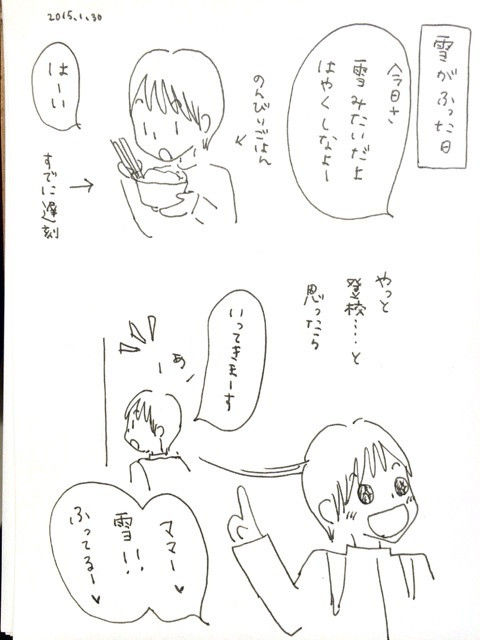 2015.1.30
雪がふった日
今日さ
雪みたいだよ
はやくしなよー
のんびりごはん
はーい
すでに遅刻
やっと
登校……と
思ったら
いってきまーす
あ
ママー♥
雪!!
ふってるー♥